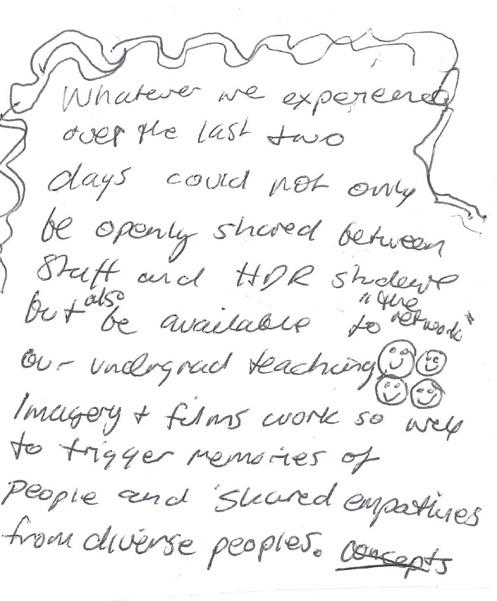 Whatever we experienced
over the last two
days could not only
be openly shared between
Staff and HDR students
but also be available to "the network"
our undergrad teaching
Imagery + films work so well
to trigger memories of
people and shared empathies
from diverse peoples. concepts